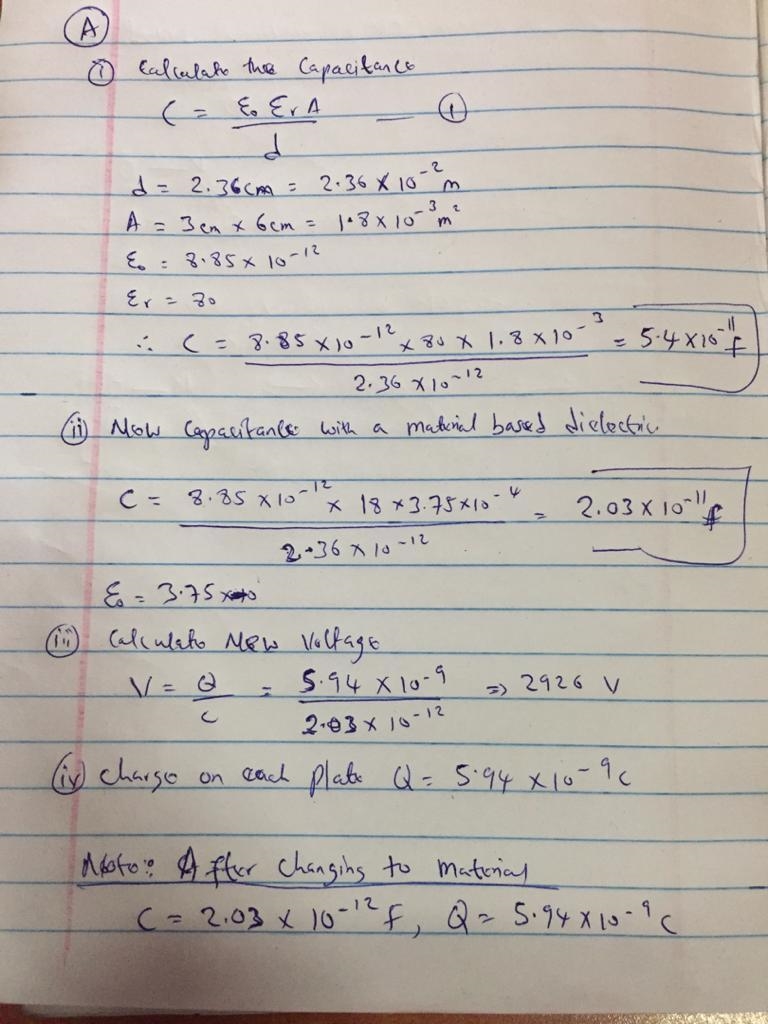 A
(i) Calculate the Capacitance
C = ε₀ εr A / d — (1)
d = 2.36cm = 2.36 × 10⁻² m
A = 3cm × 6cm = 1.8 × 10⁻³ m²
ε₀ = 8.85 × 10⁻¹²
εr = 80
∴ C = 8.85 × 10⁻¹² × 80 × 1.8 × 10⁻³ / 2.36 × 10⁻¹² = 5.4 × 10⁻¹¹ f
(ii) New Capacitance with a material based dielectric
C = 8.85 × 10⁻¹² × 18 × 3.75 × 10⁻⁴ / 2.36 × 10⁻¹² = 2.03 × 10⁻¹¹ f
ε₀ = 3.75 ×
(iii) Calculate New Voltage
V = Q / C = 5.94 × 10⁻⁹ / 2.03 × 10⁻¹² => 2926 V
(iv) Charge on each plate Q = 5.94 × 10⁻⁹ C
Note: After changing to material
C = 2.03 × 10⁻¹² f, Q = 5.94 × 10⁻⁹ C